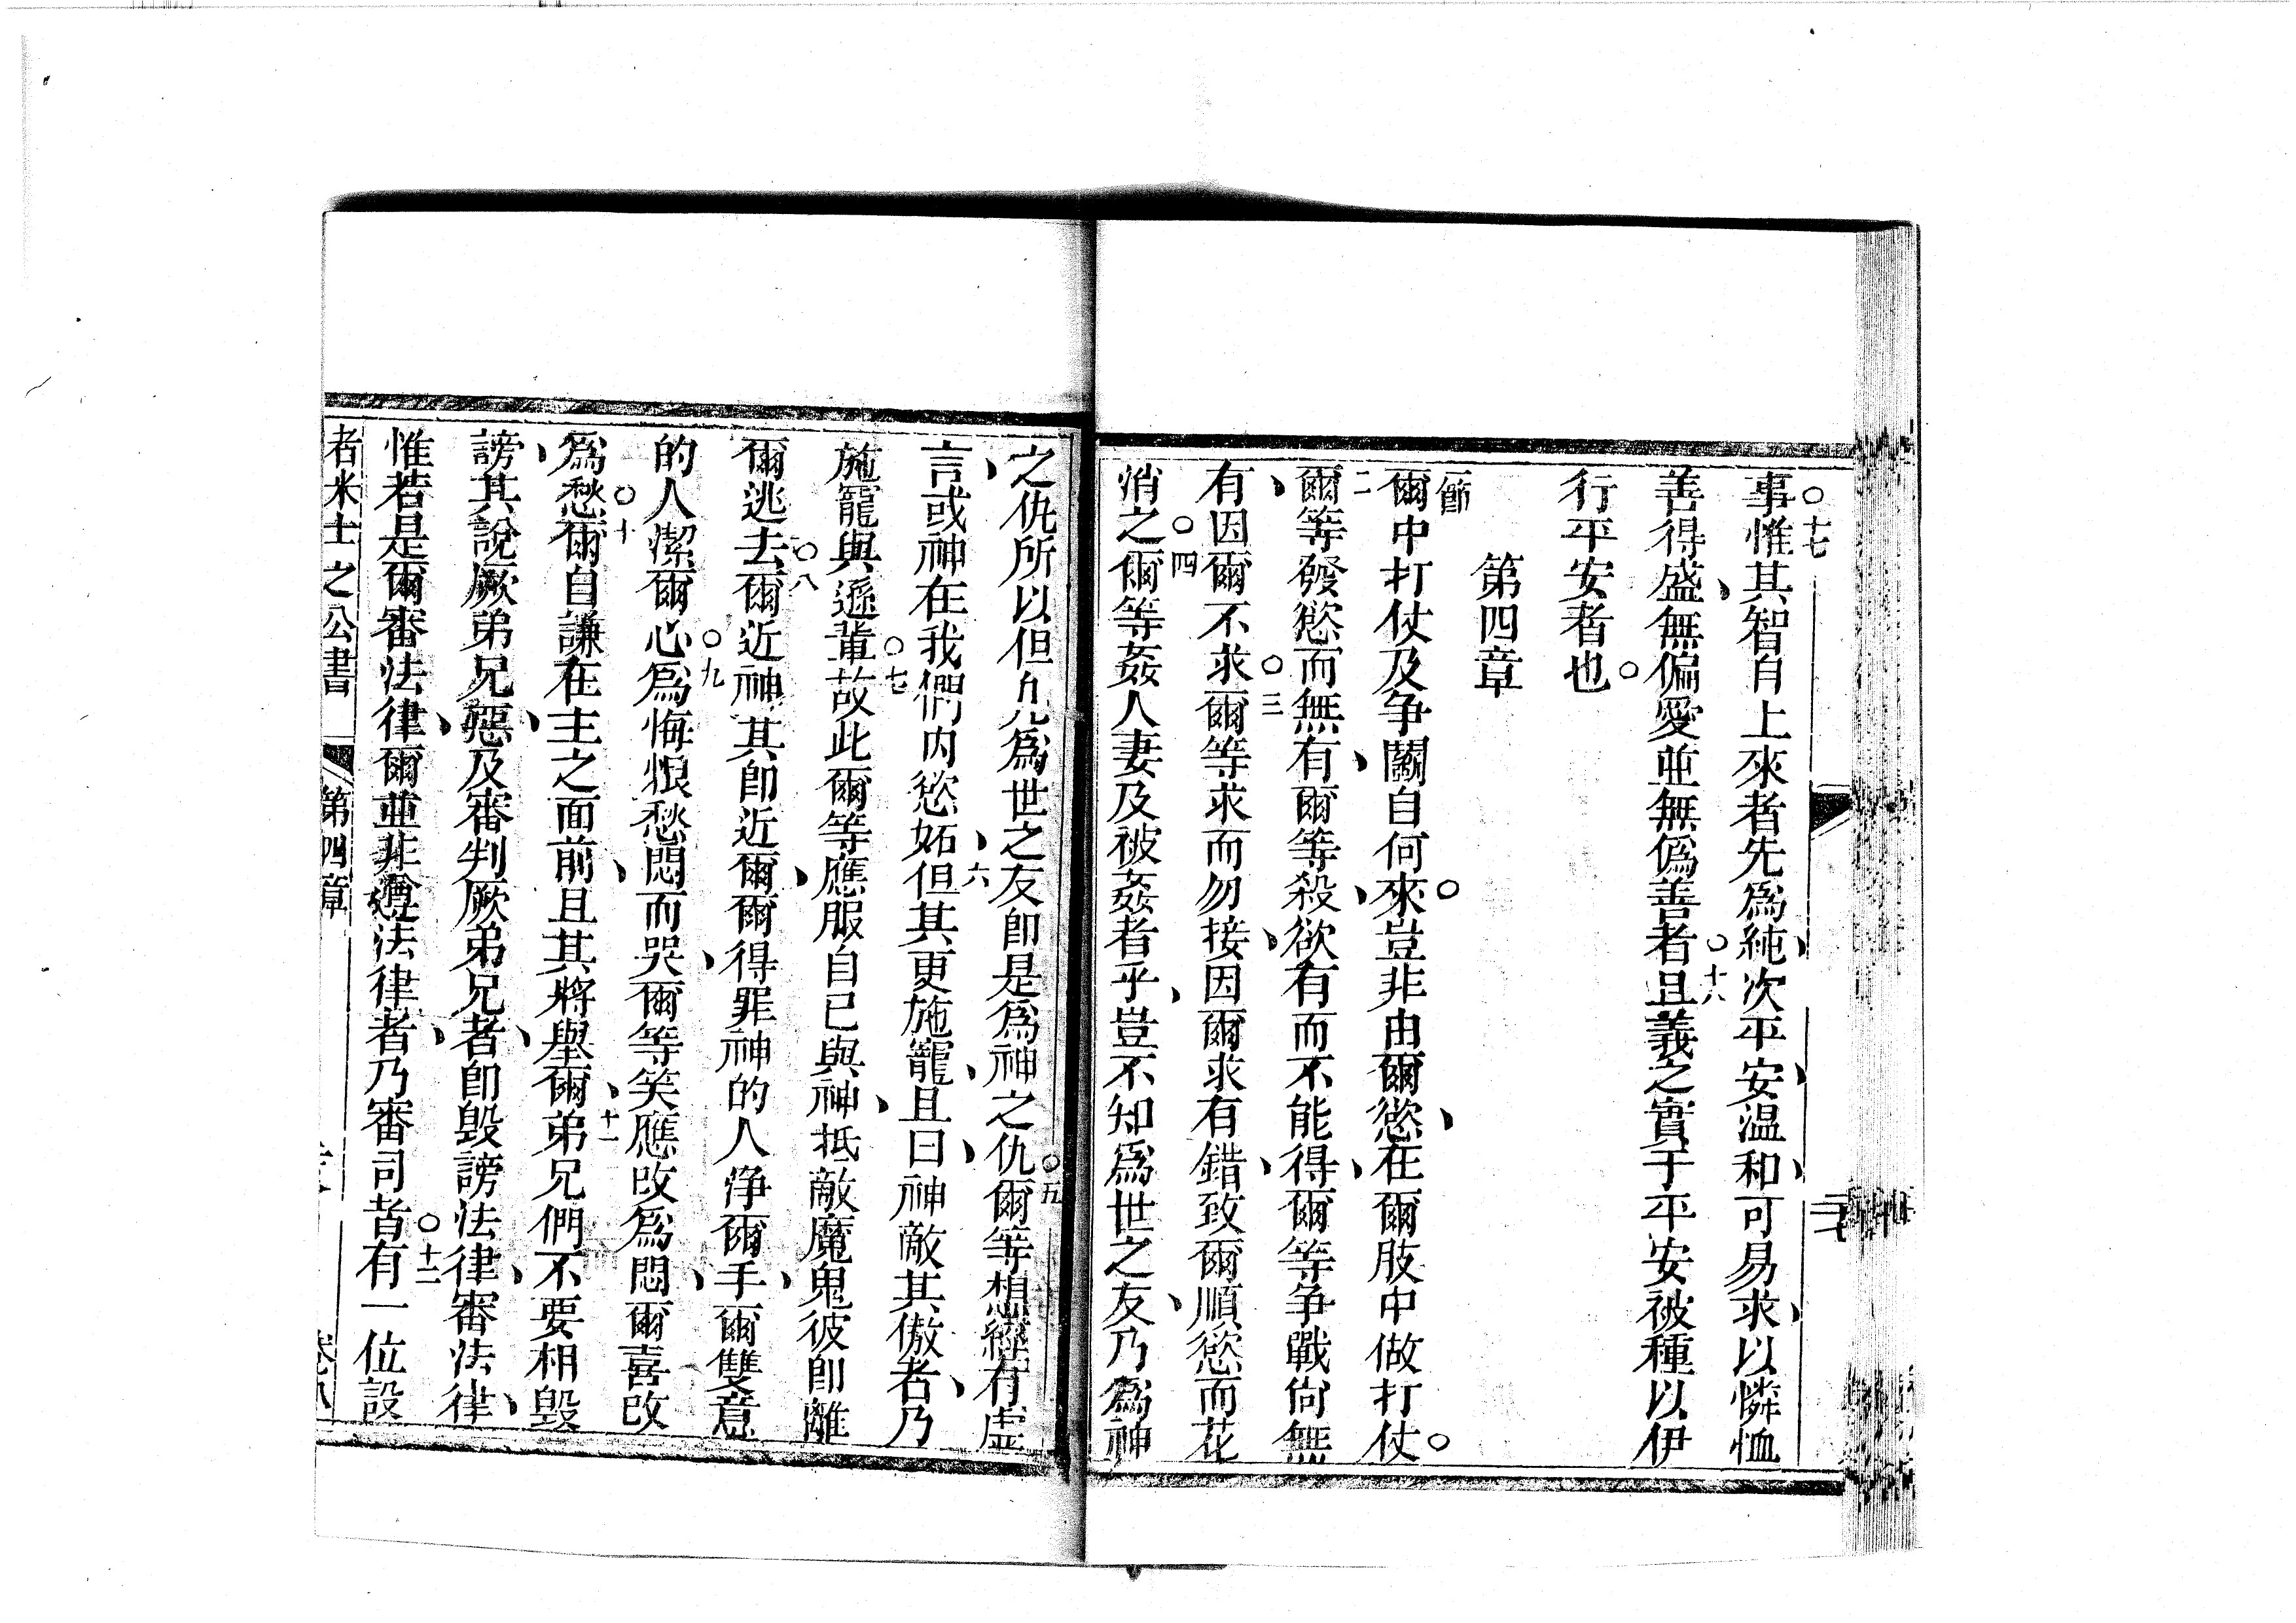 事惟其智自上來者先爲純、次平安、温和、可易求、以憐恤
善得盛、無偏愛並無僞善者○十八且義之實于平安被種以伊
行平安者也○
第四章
一節爾中打仗及爭鬭自何來○豈非由爾慾、在爾肢中做打仗○
二爾等發慾而無有、爾等殺、欲有而不能得、爾等爭戰尙無
有、因爾不求○三爾等求而勿接、因爾求有錯、致爾順慾而花
消之○四爾等姦人妻及被姦者乎、豈不知爲世之友、乃爲神
之仇所以但凡爲世之友卽是爲神之仇○五爾等想經有虛
言、或神在我們內慾妬、六但其更施寵、且曰、神敵其傲者、乃
施寵與遜輩○七故此爾等應服自已與神、抵敵魔鬼彼卽離
爾逃去○八爾近神其卽近爾、爾得罪神的人淨爾手、爾雙意
的人潔爾心○九爲悔恨愁悶而哭、爾等笑應改爲悶、爾喜改
爲愁○十爾自謙在主之面前、且其將舉爾、十一弟兄們不要相毀
謗、其說厥弟兄惡、及審判厥弟兄者、卽毀謗法律、審法律、
惟若是爾審法律、爾並非遵法律者、乃審司者○十二有一位設
者米士之公書 第四章 卷八